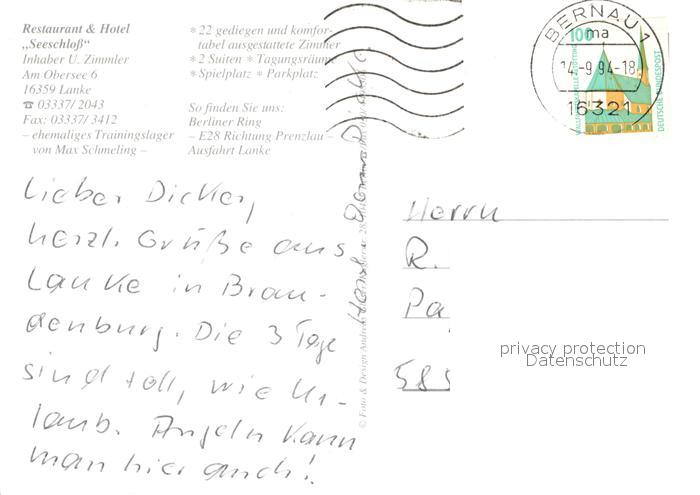 Restaurant & Hotel
„Seeschloß“
Inhaber U. Zimmler
Am Obersee 6
16359 Lanke
☎ 03337/ 2043
Fax: 03337/ 3412
– ehemaliges Trainingslager
von Max Schmeling –
* 22 gediegen und komfor-
tabel ausgestattete Zimmer
* 2 Suiten * Tagungsräume
* Spielplatz * Parkplatz
So finden Sie uns:
Berliner Ring
– E28 Richtung Prenzlau –
Ausfahrt Lanke
BERNAU 1
ma
14.-9.94-18
16321
100
DEUTSCHE BUNDESPOST
Lieber Dicker,
herzl. Grüße aus
Lanke in Bran-
denburg. Die 3 Tage
sind toll, wie Ur-
laub. Angeln kann
man hier auch!
© Foto & Design
Herrn
R.
Pa
585
privacy protection
Datenschutz